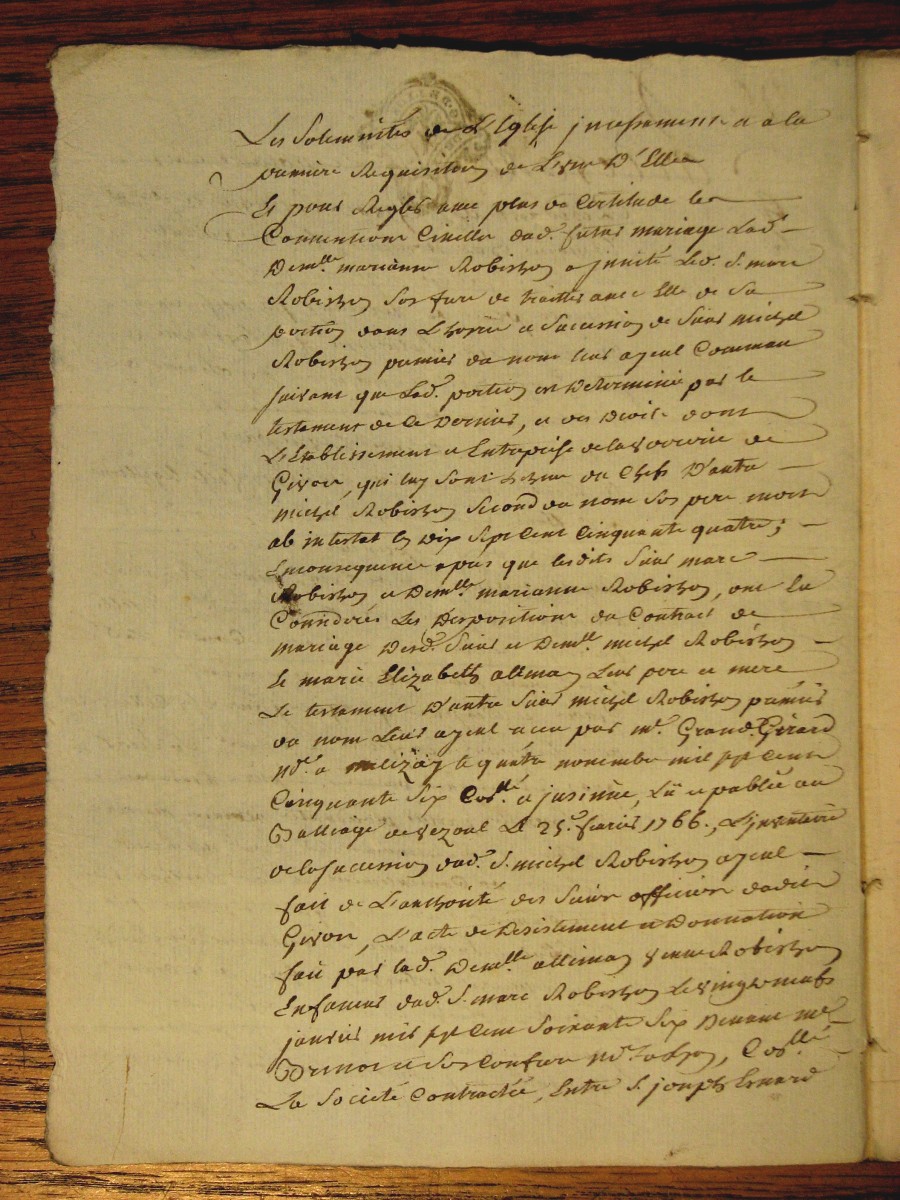 Les Solemnités de L'Eglise incessament et a la
premiere Requisition de L'une D'Elles
Et pour Regler avec plus de Certitude les
Conventions Civilles dud. futur mariage Lad.
Demlle. marianne Robichon a invité Led. S. marc
Robichon Son frere de traiter avec Elle de Sa
portion dans L'hoirie et Sucession de Sieur michel
Robichon premier du nom leur ayeul Commun
suivant que Lad. portion est Determinée par le
testament de Ce Dernier, et des Droits dont
L'Etablissement et Entreprise de la Verrerie de
Givor, qui luy Sont Echus du Chefs D'autre
michel Robichon Second du nom Son pere mort
ab intestat En Dix Sept Cent Cinquante quatre;
En consequence apres que lesdits Sieur marc
Robichon et Demlle marianne Robichon, ont
Considerés Les Dispositions du Contract de
mariage Desd. Sieur et Demlle. michel Robichon
et marie Elizabeth alliman Leur pere et mere
Le testament D'autre Sieur michel Robichon premier
du nom Leur ayeul recu par me. Grand Girard
Nre. a melizey le quatre novembre mil sept Cent
Cinquante Six Collé. a jusinée, Lü et publié au
Balliage de vezoul Le 25e. fevrier 1766., L'inventaire
de la sucession dud. S. michel Robichon ayeul
fait de L'authorité des Sieurs officiers dudit
Givor, L'acte de Desistement et Donnation
fait par lad. Demlle alliman veuve Robichon
En faveur dud. S. marc Robichon Le vingt neufs
janvier mil sept Cent Soixante Six Devant me
et Son Confrere Nre. a Lyon, Collé.
La Societé Contractée, Entre S. joseph